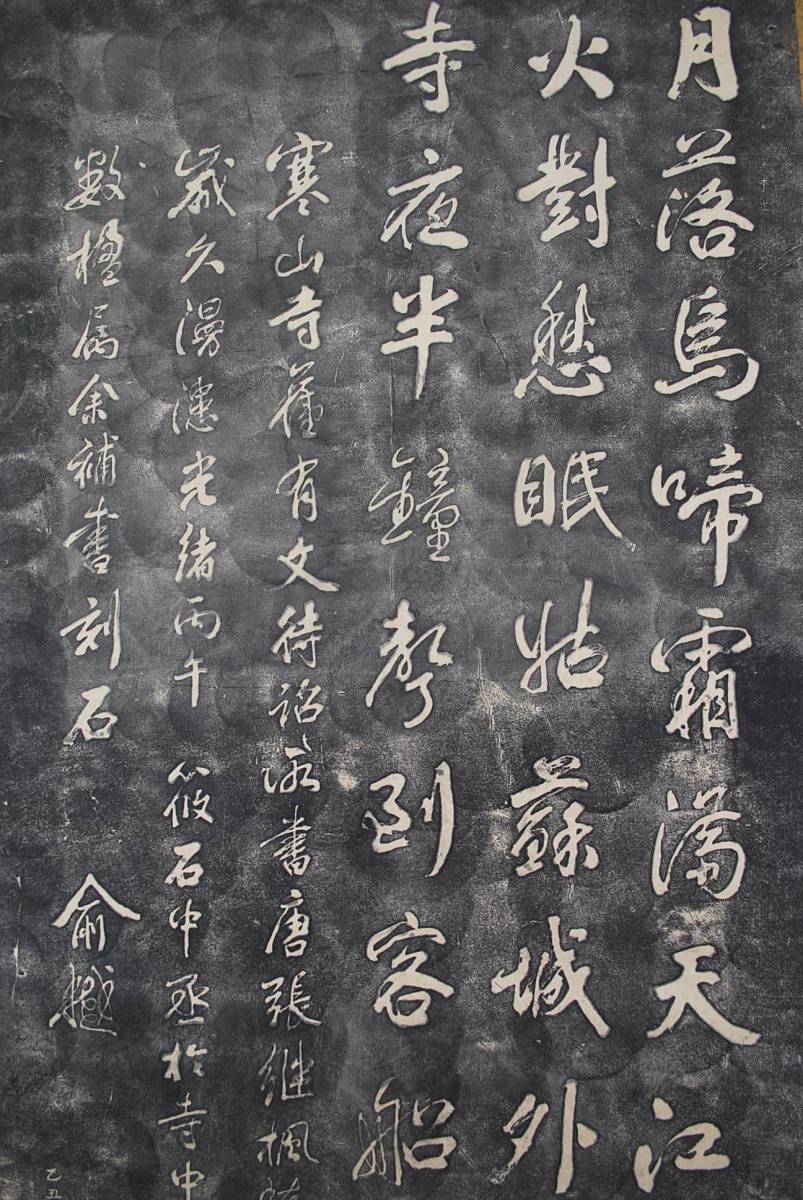 月落烏啼霜滿天江
火對愁眠姑蘇城外
寺夜半鐘聲到客船
寒山寺舊有文待詔所書唐張繼楓
歲久漫漶光緒丙午筱石中丞於寺中
數楹屬余補書刻石 俞樾
乙丑